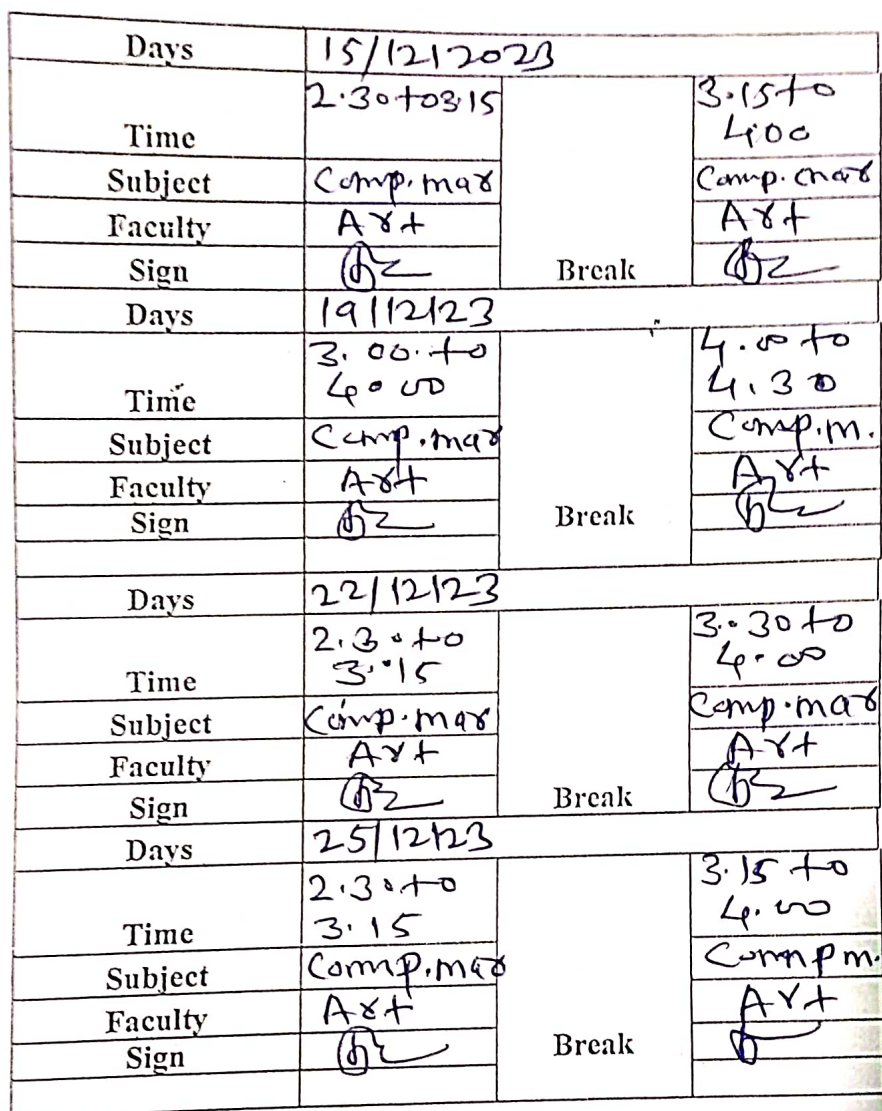 Days 15/12/2023
2.30 to 3.15 3.15 to
Time 4.00
Subject Comp. mar Comp. mar
Faculty Art Art
Sign Break
Days 19/12/23
3.00. to 4.00 to
Time 4.00 4.30
Subject Comp. mar Comp. m.
Faculty Art Art
Sign Break
Days 22/12/23
2.30 to 3.30 to
Time 3.15 4.00
Subject Comp. mar Comp. mar
Faculty Art Art
Sign Break
Days 25/12/23
2.30 to 3.15 to
Time 3.15 4.00
Subject Comp. mar Comp m.
Faculty Art Art
Sign Break